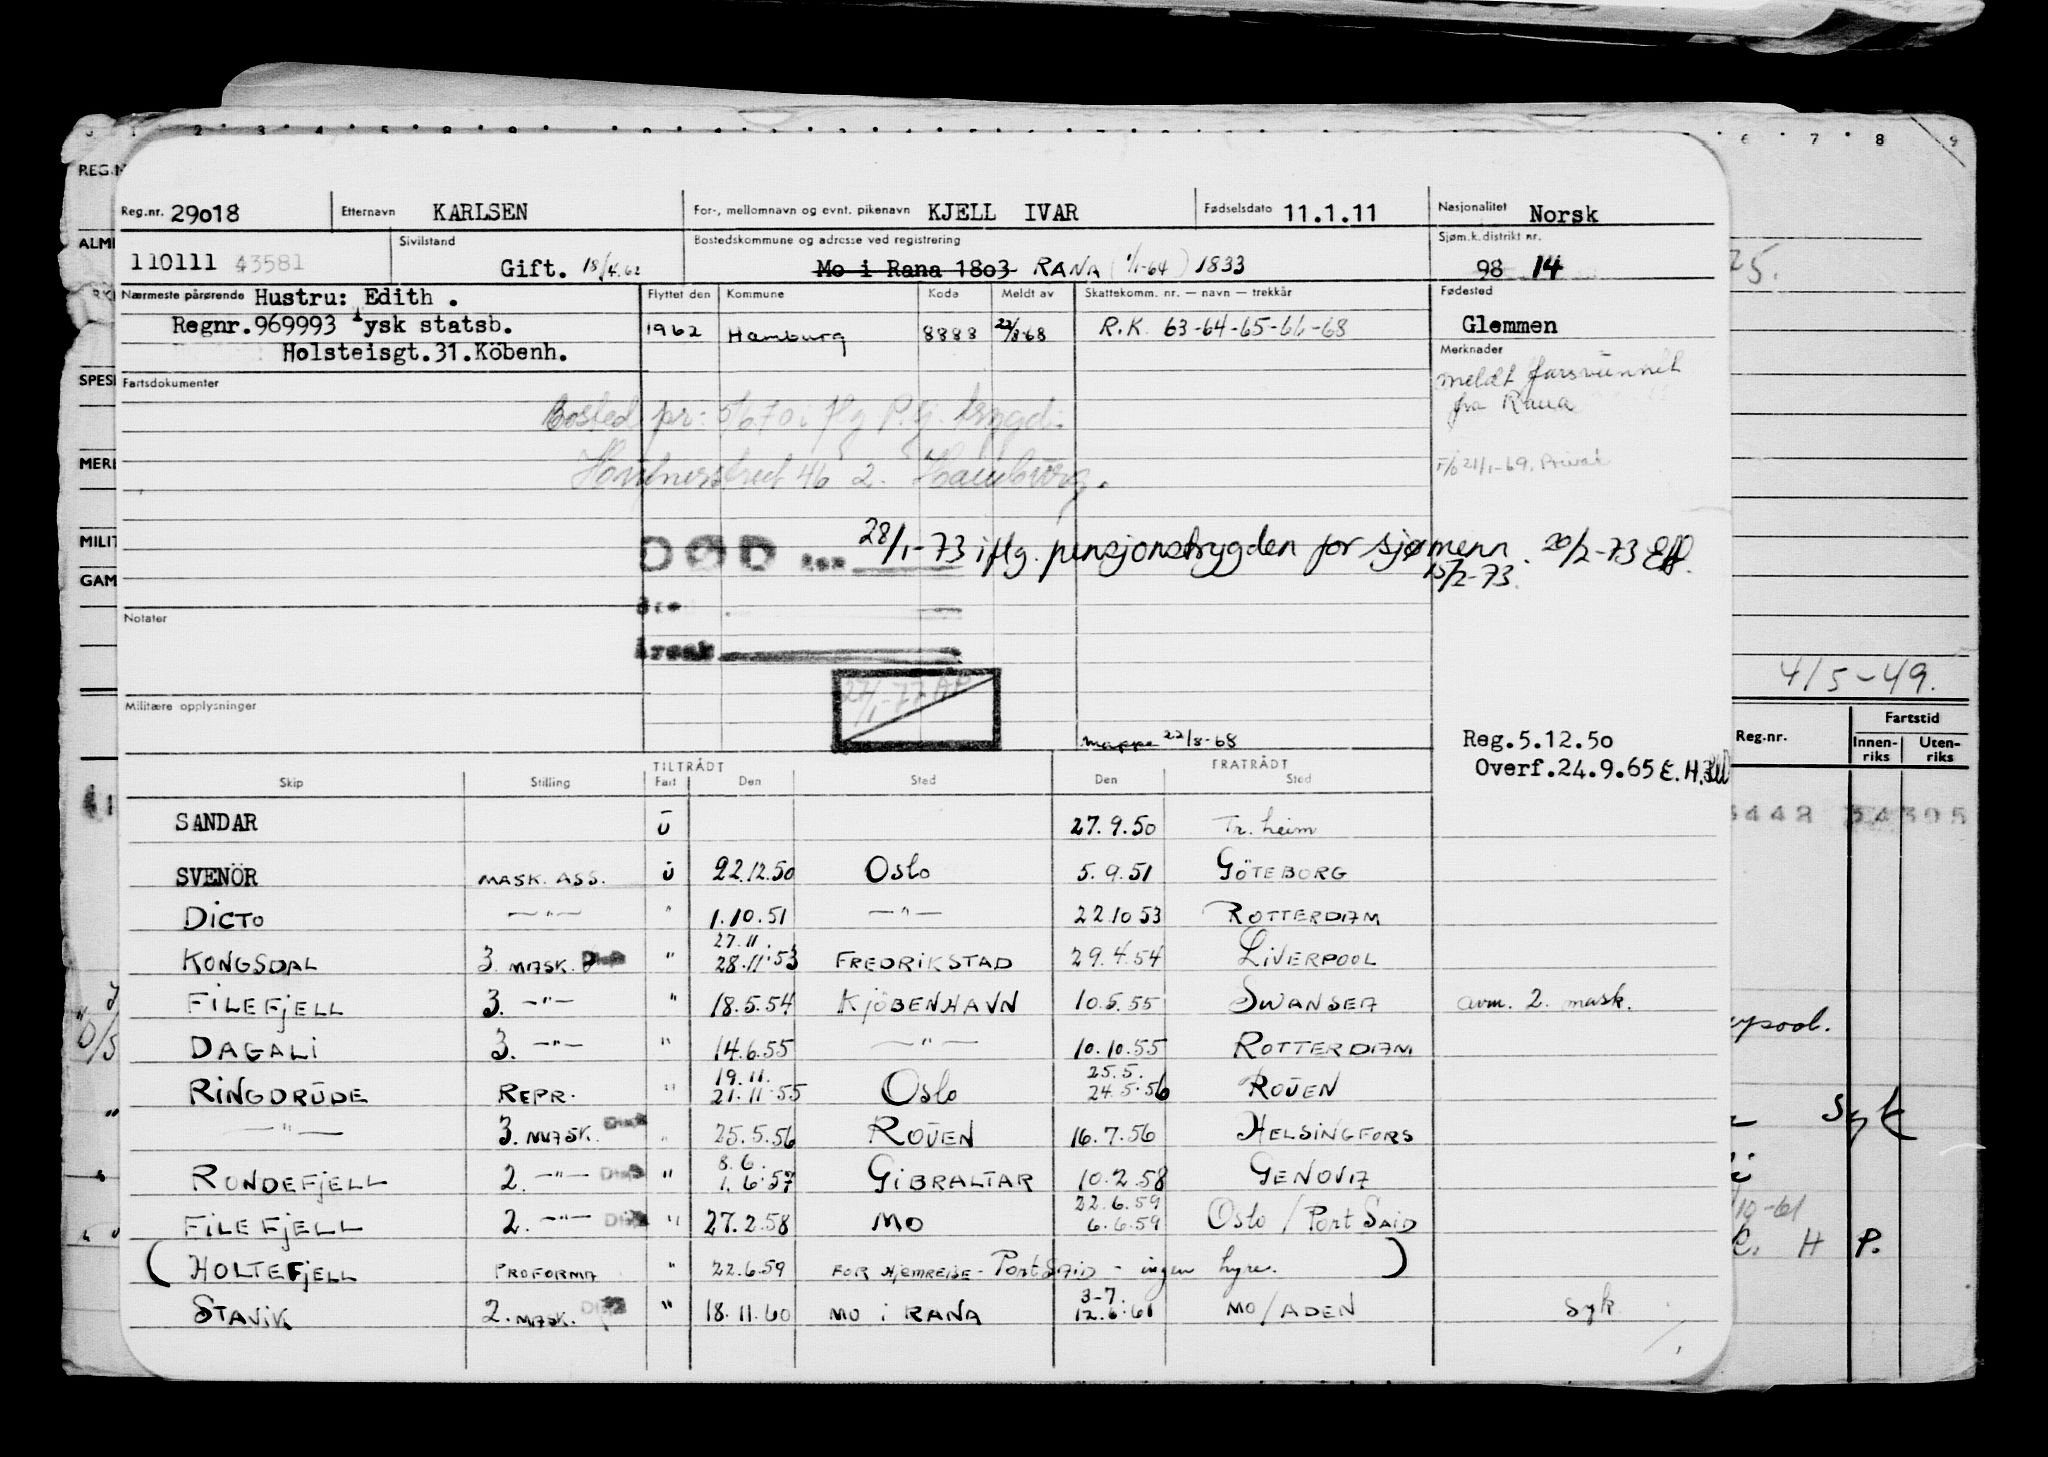 Reg.nr. 29018 Etternavn KARLSEN For-, mellomnavn og evnt. pikenavn KJELL IVAR Fødselsdato 11.1.11 Nasjonalitet Norsk
110111 43581 Sivilstand Gift. 18/4.62 Bostedskommune og adresse ved registrering Mo i Rana 1803 RANA (1/1-64) 1833 Sjøm.k.distrikt nr. 98 14
Nærmeste pårørende Hustru: Edith . Flyttet den Kommune Kode Meldt av Skattekomm. nr. — navn — trekkår Fødested
Regnr.969993 Tysk statsb. 1962 Hamburg 8888 22/8.68 R.K. 63-64-65-66-68 Glemmen
Holsteisgt.31.Köbenh. Merknader
Fartsdokumenter meldt forsvunnet
Bosted pr: 5/6.70 i flg P.sj. trygd: fra Rana
46 2. Hamburg. 21/1-69. Privat
DØD den 28/1-73 iflg. pensjonstrygden for sjømenn. 20/2-73 Eff.
15/2-73.
Notater
Årsak
Militære opplysninger
mappe 22/8-68 Reg.5.12.50
Overf.24.9.65 E.H.
TILTRÅDT FRATRÅDT
Skip Stilling Fart Den Sted Den Sted
SANDAR U 27.9.50 Tr.heim
SVENÖR MASK. ASS. U 22.12.50 Oslo 5.9.51 GÖTEBORG
DICTO —"— " 1.10.51 —"— 22.10 53 ROTTERDAM
27.11.
KONGSDAL 3. MASK. " 28.11.53 FREDRIKSTAD 29.4.54 LIVERPOOL
FILEFJELL 3. —"— " 18.5.54 KJÖBENHAVN 10.5.55 SWANSEA avm. 2. mask.
DAGALI 3. —"— " 14.6.55 —"— 10.10.55 ROTTERDAM
19.11. 25.5.
RINGDRUDE REPR. " 21.11.55 Oslo 24.5.56 ROUEN
—"— 3. MASK. " 25.5.56 ROUEN 16.7.56 HELSINGFORS
8.6.
RONDEFJELL 2. —"— " 1.6.57 GIBRALTAR 10.2.58 GENOVA
22.6.59
FILEFJELL 2. —"— " 27.2.58 MO 6.6.59 Oslo / PORT SAID
(HOLTEFJELL PROFORMA " 22.6.59 FOR HJEMREISE - PORT SAID - ingen hyre. )
3-7.
STAVIK 2. MASK. " 18.11.60 MO I RANA 12.6.61 MO/ADEN Syk
6 7 8 9
REG.N
ALM
SPES
MER
MILIT
GAM
25.
4/5-49.
Reg.nr. Fartstid
Innen-riks Uten-riks
Syk
/10-61
H P.